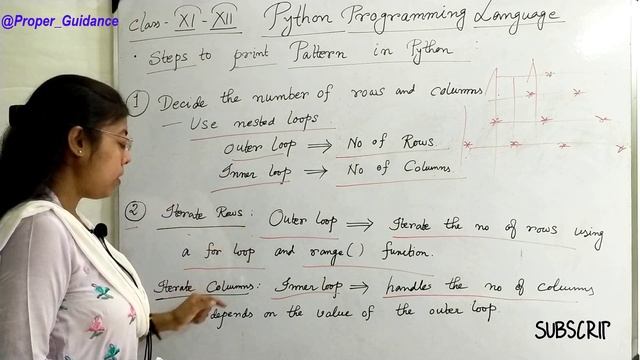 @Proper_Guidance
Class - XI - XII Python Programming Language
• Steps to print Pattern in Python :
① Decide the number of rows and columns
— Use nested loops
Outer loop ⟹ No of Rows.
Inner loop ⟹ No of Columns
② Iterate Rows : Outer loop ⟹ Iterate the no of rows using
a for loop and range( ) function.
Iterate Columns : Inner loop ⟹ handles the no of columns
depends on the value of the outer loop.
SUBSCRIP